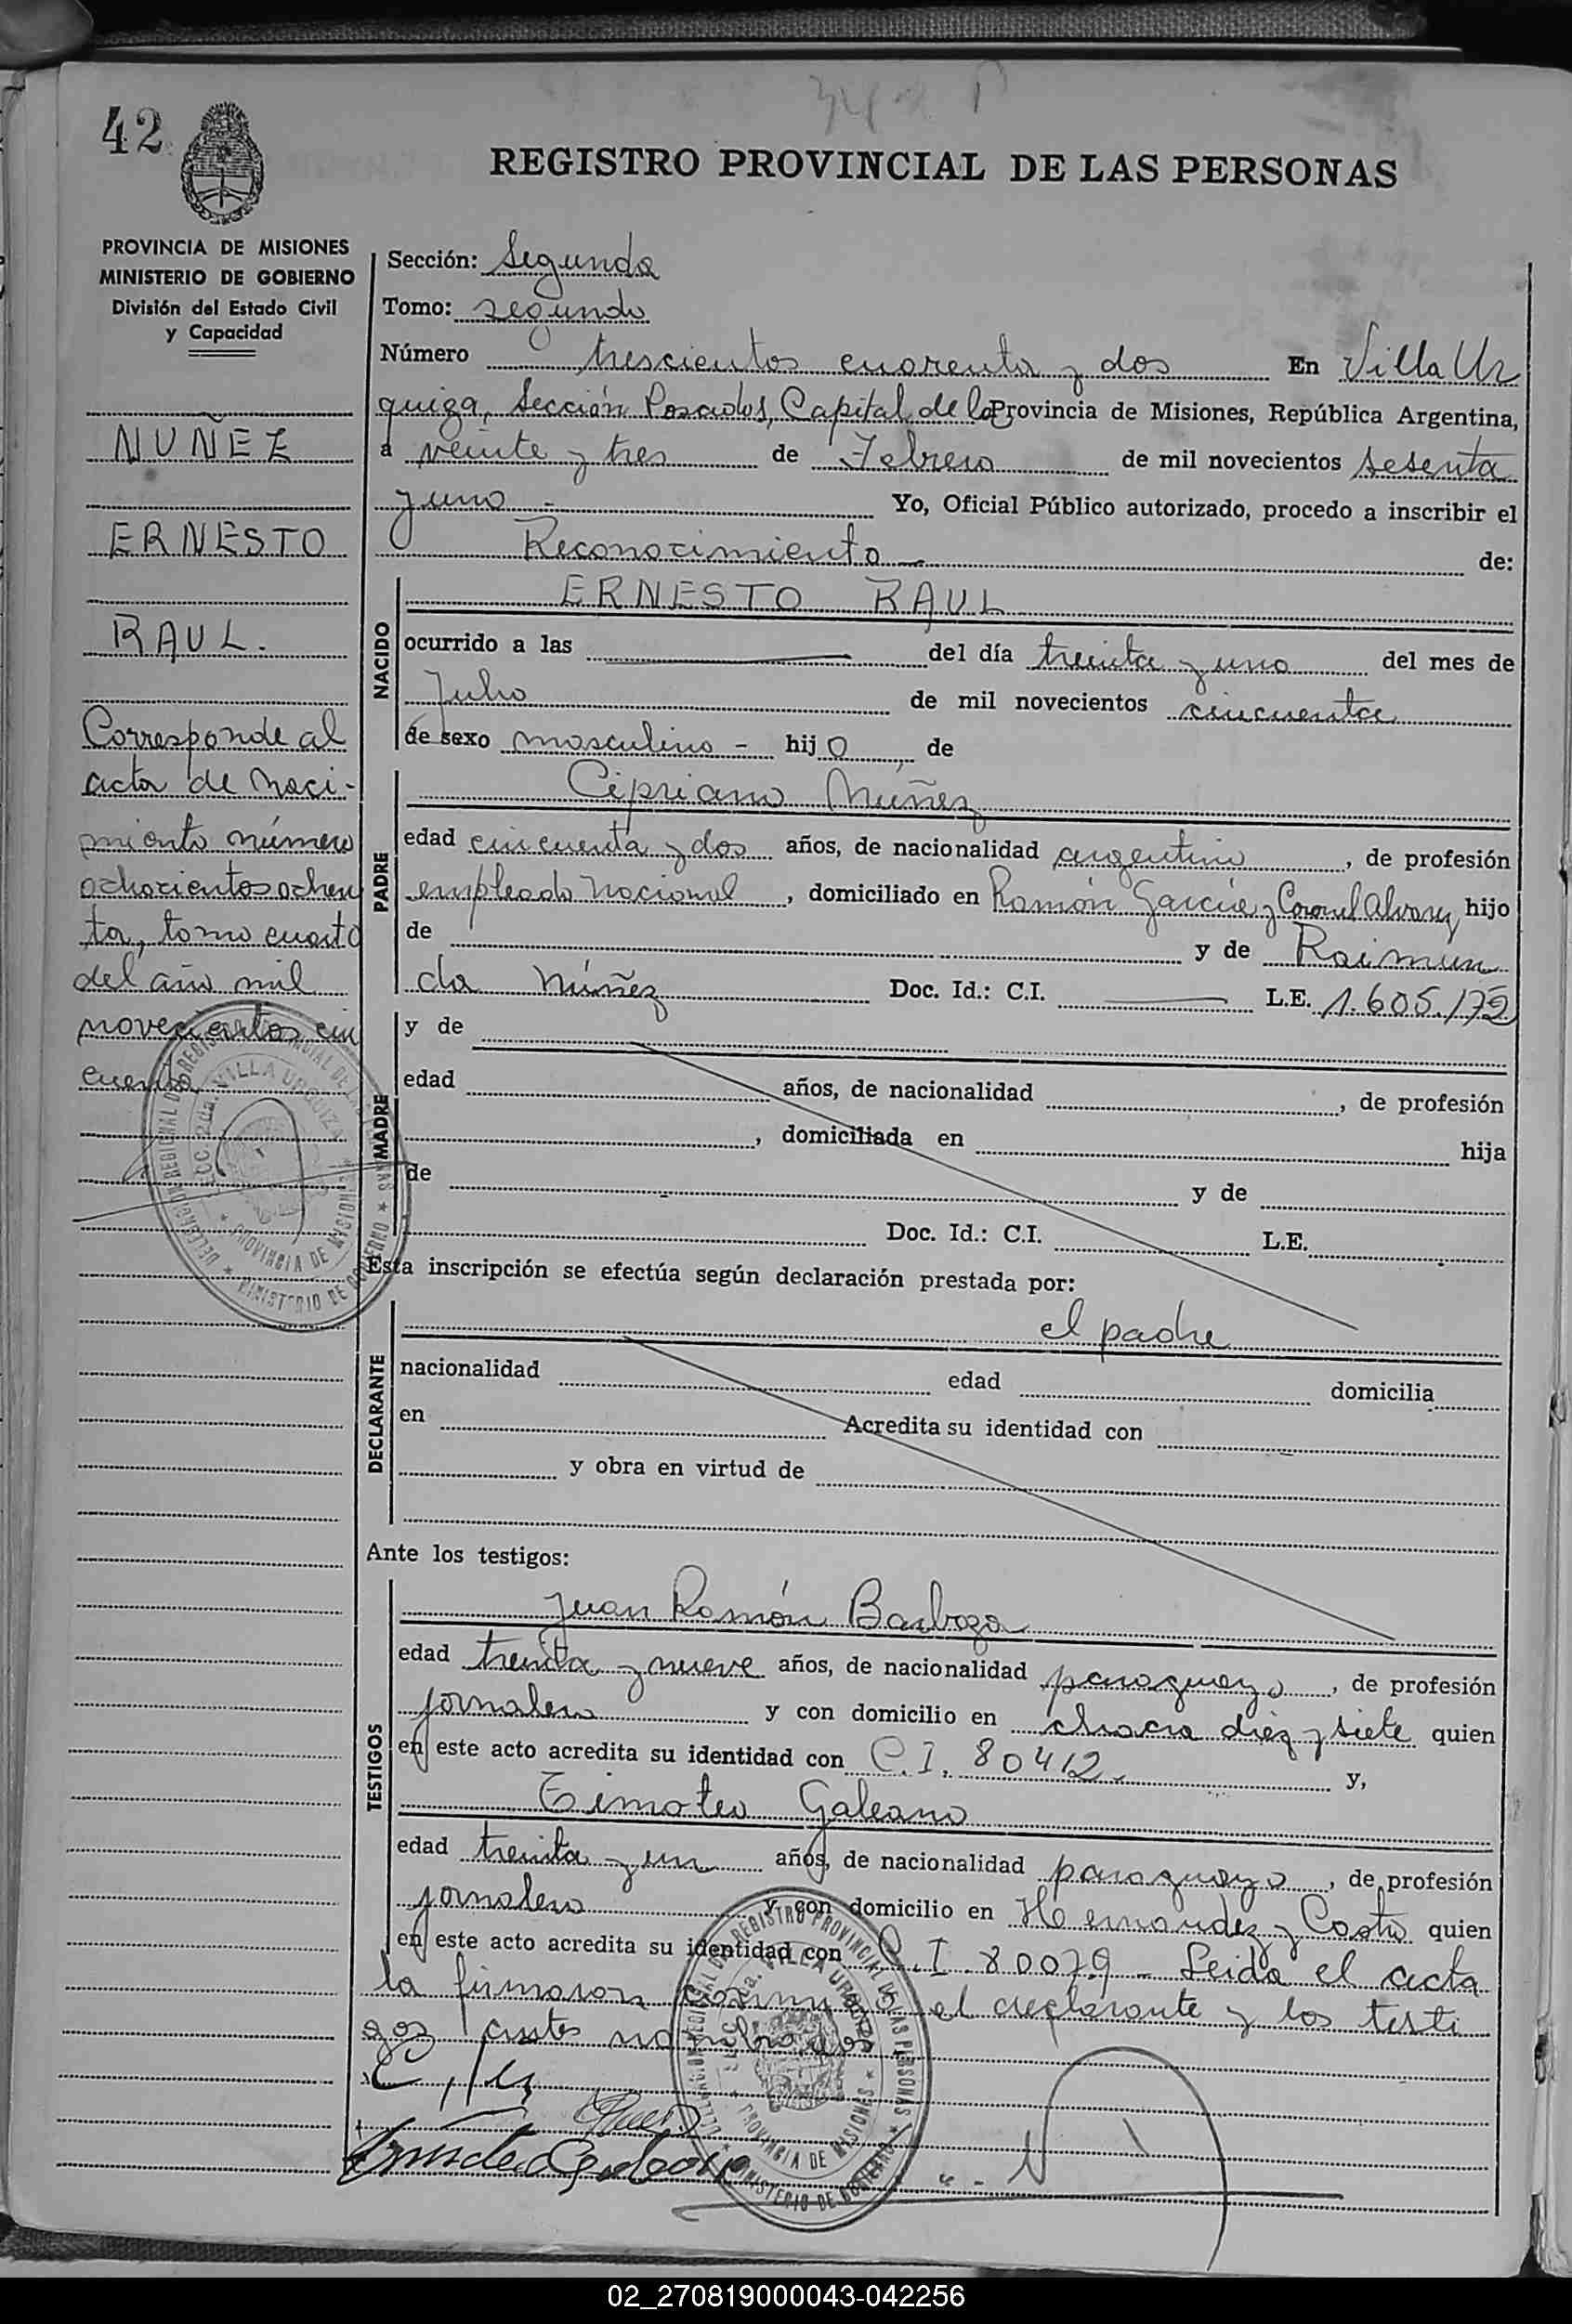 42
REGISTRO PROVINCIAL DE LAS PERSONAS
PROVINCIA DE MISIONES
MINISTERIO DE GOBIERNO
División del Estado Civil
y Capacidad
NUÑEZ
ERNESTO
RAUL.
Corresponde al
acta de naci-
miento número
ochocientos ochen
ta, tomo cuarto
del año mil
novecientos cin
cuenta
Sección: Segunda
Tomo: segundo
Número trescientos cuarenta y dos En Villa Ur
quiza, Sección Posadas, Capital de la Provincia de Misiones, República Argentina,
a veinte y tres de Febrero de mil novecientos sesenta
y uno - Yo, Oficial Público autorizado, procedo a inscribir el
Reconocimiento de:
NACIDO
ERNESTO RAUL
ocurrido a las del día treinta y uno del mes de
Julio de mil novecientos cincuenta
de sexo masculino - hijo de
PADRE
Cipriano Núñez
edad cincuenta y dos años, de nacionalidad argentino, de profesión
empleado nacional, domiciliado en Ramón García y Coronel Alvarez hijo
de y de Raimun
da Núñez Doc. Id.: C.I. L.E. 1.605.172
MADRE
y de
edad años, de nacionalidad , de profesión
, domiciliada en hija
de y de
Doc. Id.: C.I. L.E.
Esta inscripción se efectúa según declaración prestada por:
DECLARANTE
el padre
nacionalidad edad domicilia
en Acredita su identidad con
y obra en virtud de
Ante los testigos:
TESTIGOS
Juan Ramón Barboza
edad treinta y nueve años, de nacionalidad paraguayo, de profesión
jornalero y con domicilio en chacra diez y siete quien
en este acto acredita su identidad con C.I. 80412 y,
Timoteo Galeano
edad treinta y un años, de nacionalidad paraguayo, de profesión
jornalero y con domicilio en Hernandez y Castro quien
en este acto acredita su identidad con C.I. 80079 - Leida el acta
la firmaron el declarante y los testi
gos antes nombrados
DELEGACION REGIONAL DEL REGISTRO PROVINCIAL DE LAS PERSONAS
SECC. 2da. VILLA URQUIZA
PROVINCIA DE MISIONES
MINISTERIO DE GOBIERNO
02_270819000043-042256